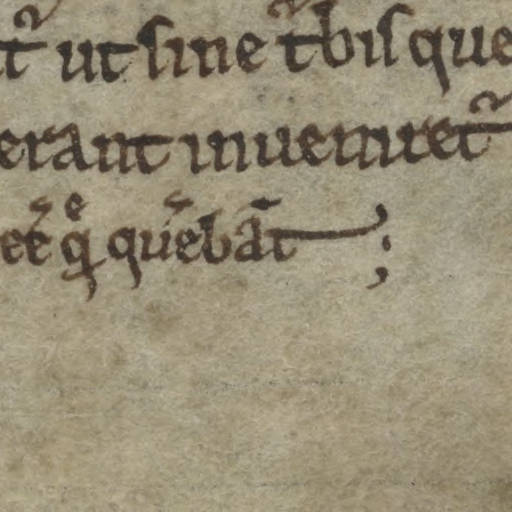 t᷑ ut sine t᷑bis que
erant inueniret᷑
eēt qͥ̄ querebāt ;